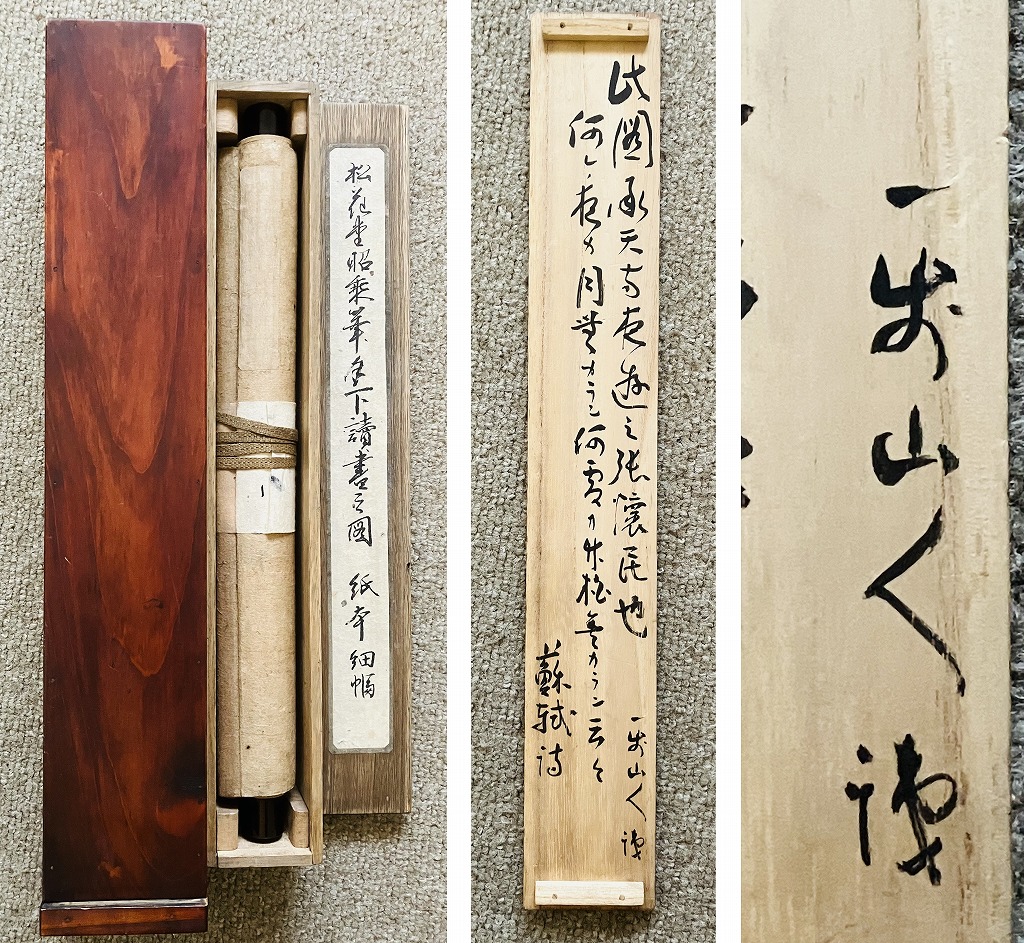 松花堂昭乘筆 下讀書之圖 紙本 細幅
此圖承天寺夜遊之張懐民也
何レノ夜カ月無カラン何處カ竹柏無カラン云々
蘇軾詩
一 山人
一 山人